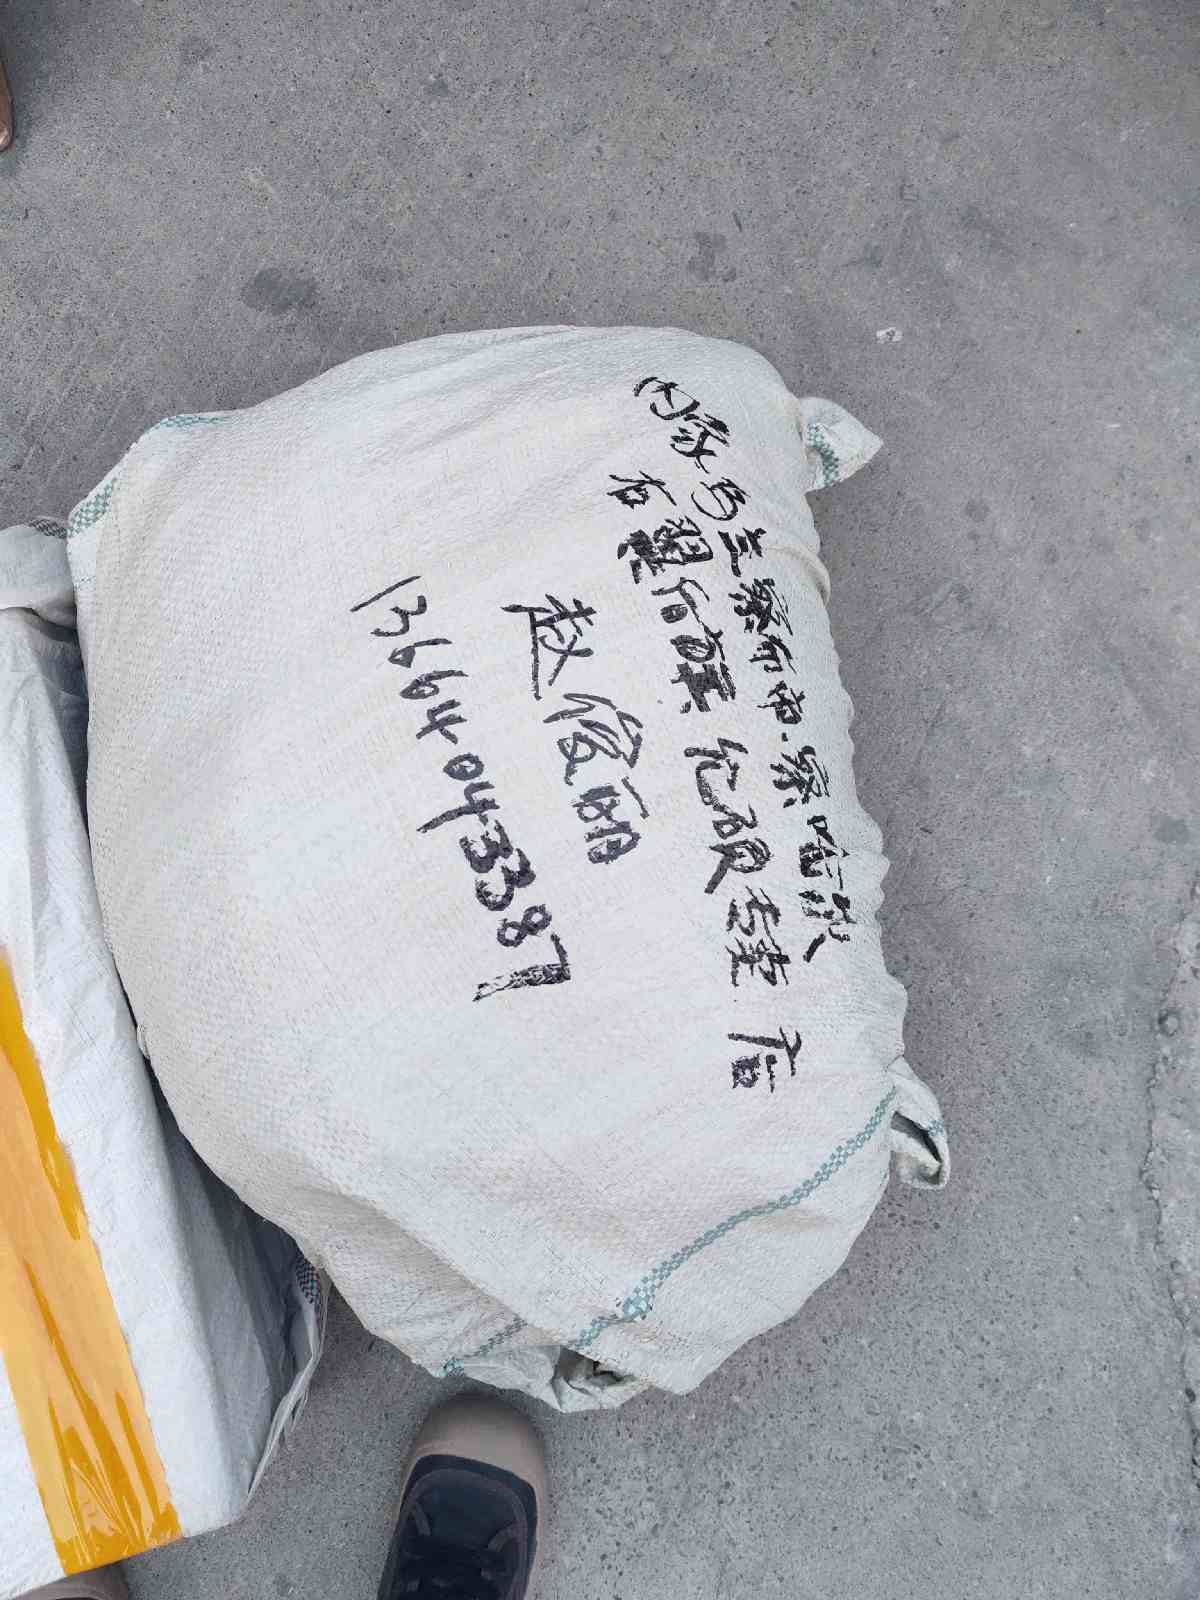 内蒙乌兰察布市.察哈尔
右翼后旗 硕专卖 店
赵俊丽
13664043387